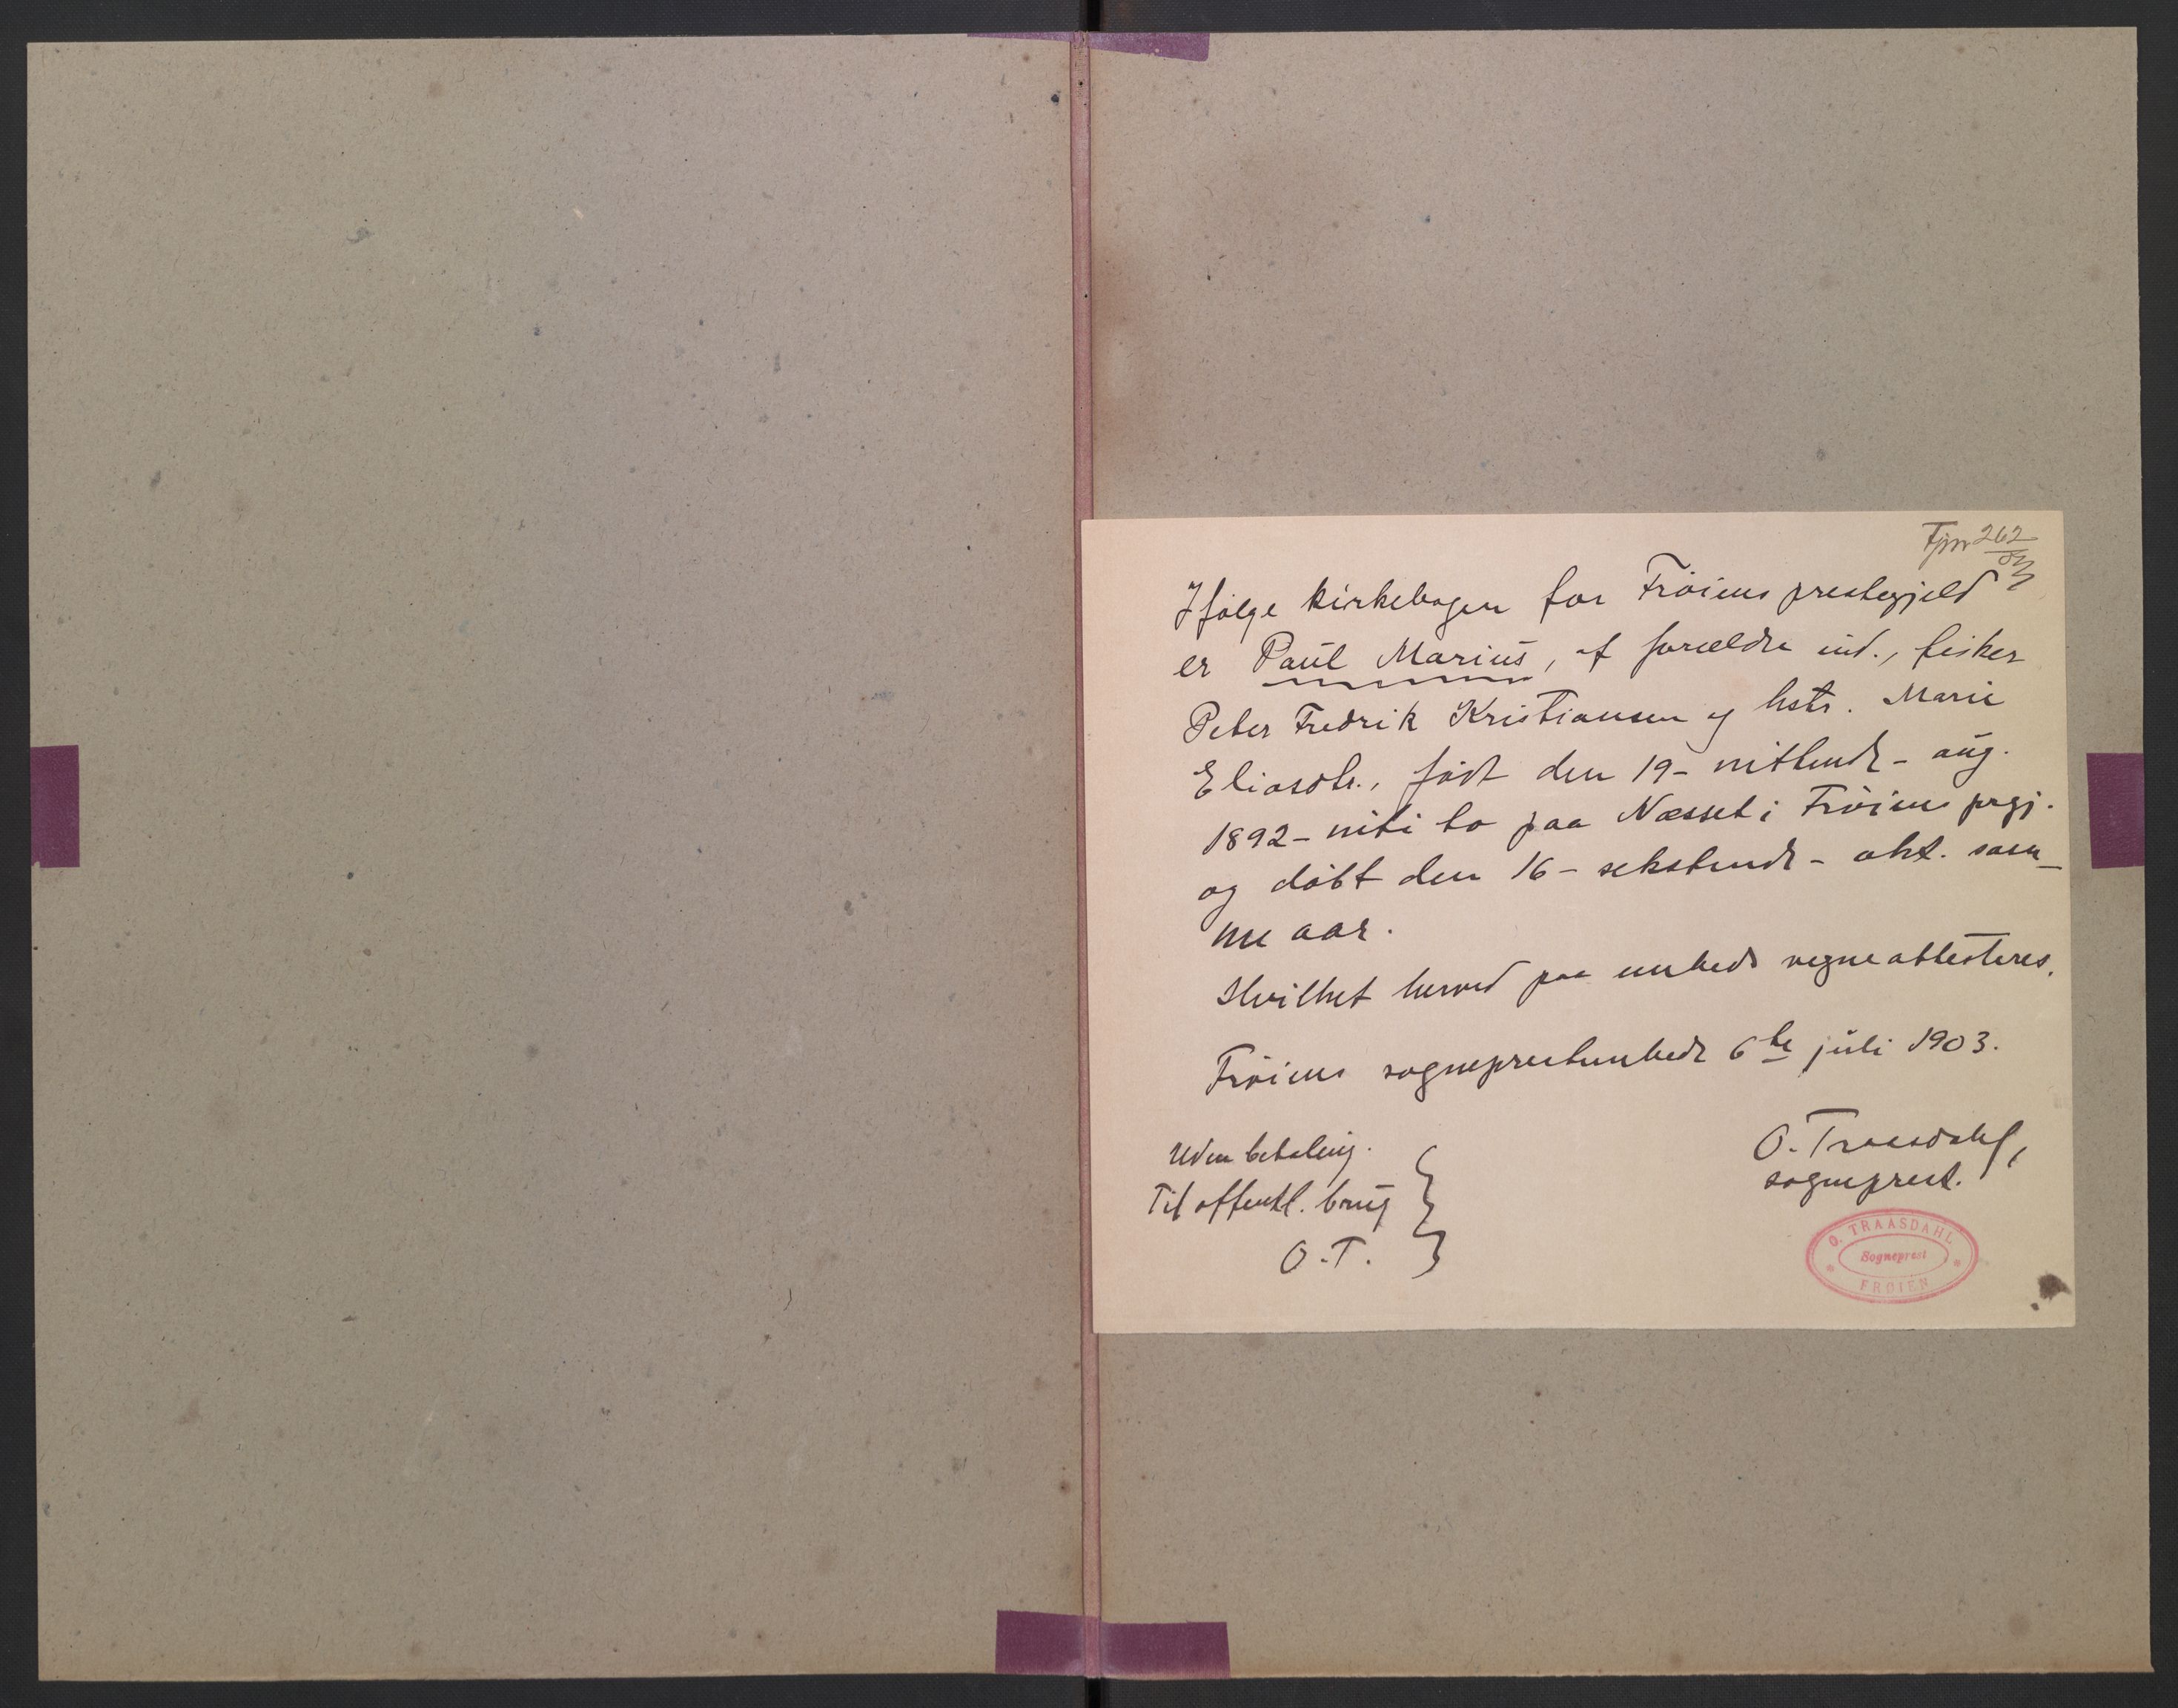 262
03
Ifølge kirkebogen for Frøiens prestegjeld
er Paul Marius, af forældre ind., fisker
Peter Fredrik Kristiansen og hstr. Marie
Eliasdtr., født den 19 - nittende - aug.
1892 - nitti to paa Næsset i Frøiens prgj.
og døbt den 16 - sekstende - okt. sam-
me aar.
Hvilket herved paa embeds vegne attesteres.
Frøiens sogneprestembede 6te juli 1903.
O. Traasdahl,
sogneprest.
Uden betaling.
Til offentl. brug
O.T.
O. TRAASDAHL
Sogneprest
FRØIEN